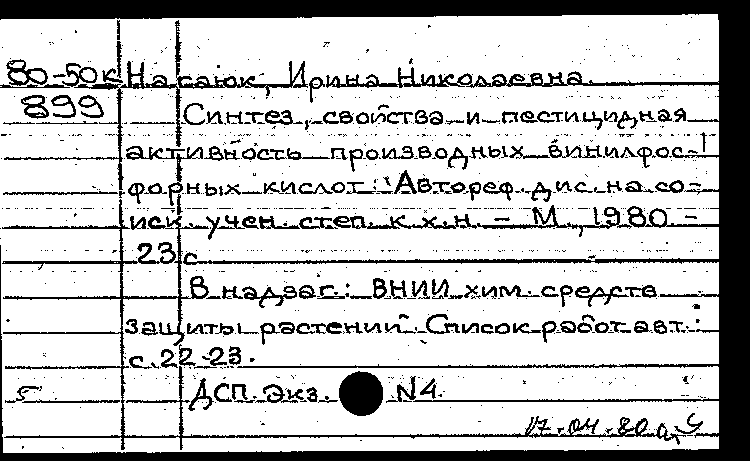 80-50к Насаюк, Ирина Николаевна.
899 Синтез, свойства и пестицидная
активность производных винилфос-
форных кислот: Автореф. дис. на со-
иск. учен. степ. к.х.н. - М., 1980 -
23 с
В надзаг.: ВНИИ хим. средств
защиты растений. Список работ авт.:
с. 22-23.
5 ДСП. Экз. N4
17.04.80